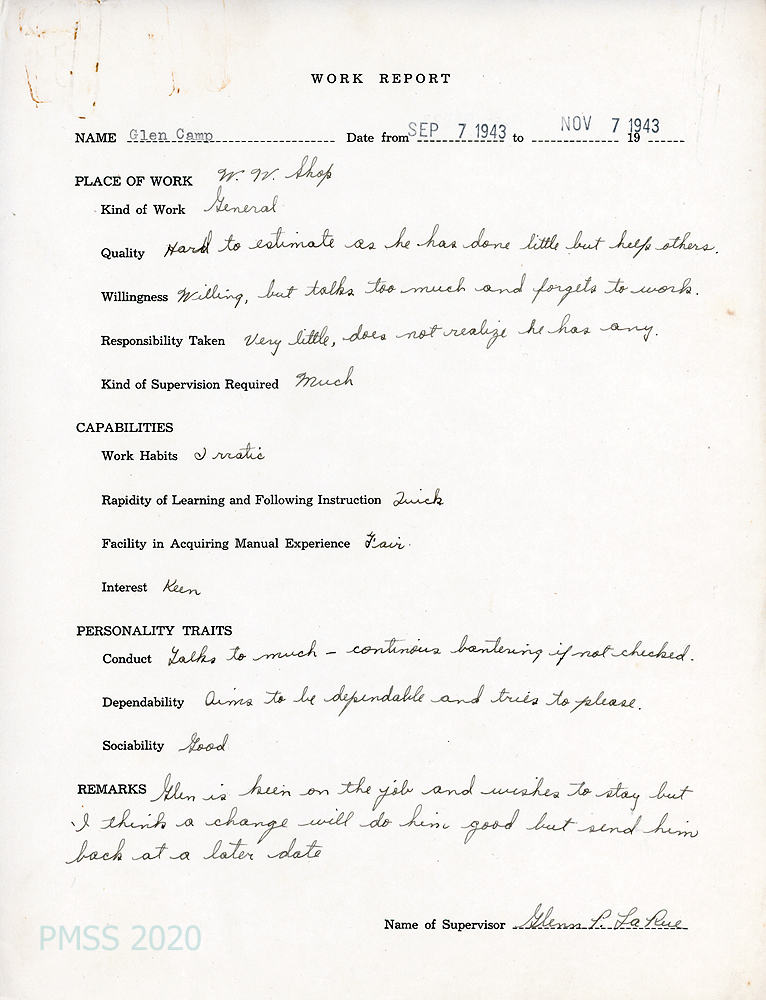 WORK REPORT
NAME Glen Camp Date from SEP 7 1943 to NOV 7 1943 19
PLACE OF WORK W. W. Shop
Kind of Work General
Quality Hard to estimate as he has done little but helps others.
Willingness Willing, but talks too much and forgets to work.
Responsibility Taken Very little, does not realize he has any.
Kind of Supervision Required Much
CAPABILITIES
Work Habits Irratic
Rapidity of Learning and Following Instruction Quick
Facility in Acquiring Manual Experience Fair.
Interest Keen
PERSONALITY TRAITS
Conduct Talks to much – continous bantering if not checked.
Dependability Aims to be dependable and tries to please.
Sociability Good
REMARKS Glen is keen on the job and wishes to stay but
I think a change will do him good but send him
back at a later date
Name of Supervisor Glenn P. La Rue
PMSS 2020